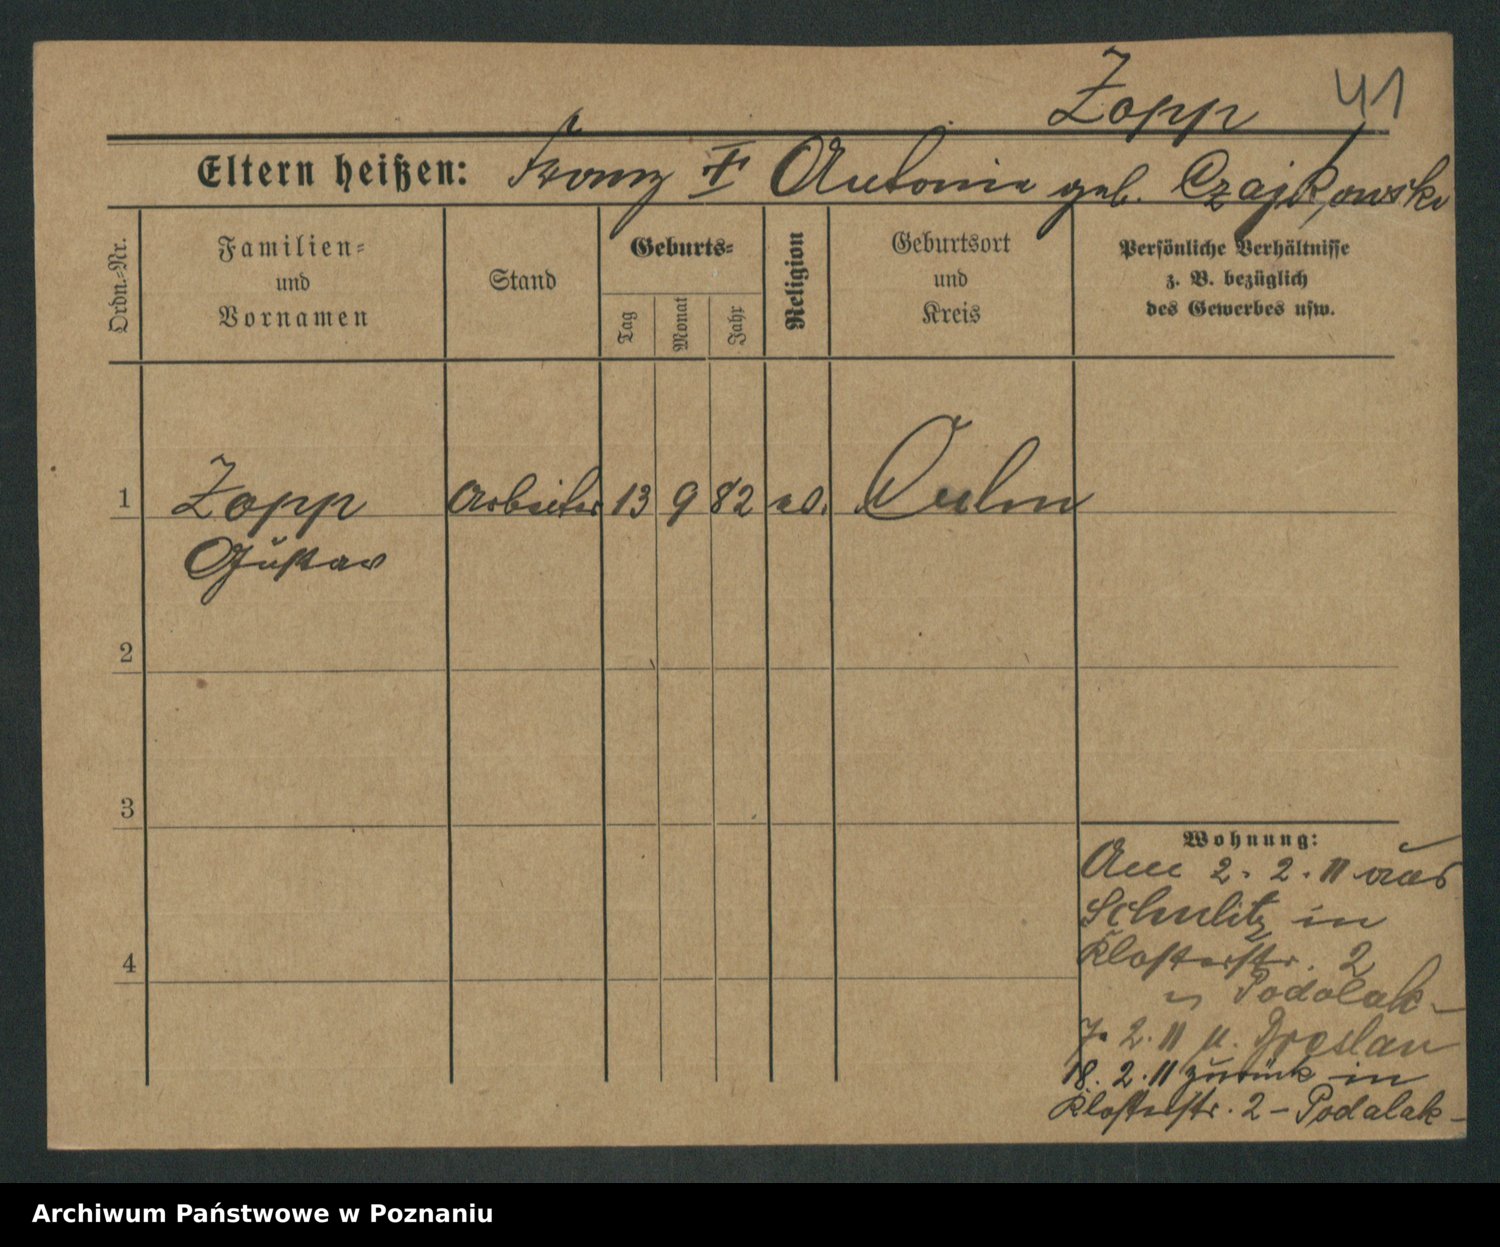 Zopp 41
Eltern heißen: Franz † Antonie geb. Czajkowski
Ordn.-Nr.
Familien-
und
Vornamen
Stand
Geburts-
Tag
Monat
Jahr
Religion
Geburtsort
und
Kreis
Persönliche Verhältnisse
z. B. bezüglich
des Gewerbes usw.
1 Zopp Arbeiter 13 9 82 Culm
Gustav
2
3
4
Wohnung:
Am 2. 2. 11 aus
Schulitz in
Klosterstr. 2
Podolak-
7. 2. 11 n. Breslau
18. 2. 11 zurück in
Klosterstr. 2 - Podalak-
Archiwum Państwowe w Poznaniu